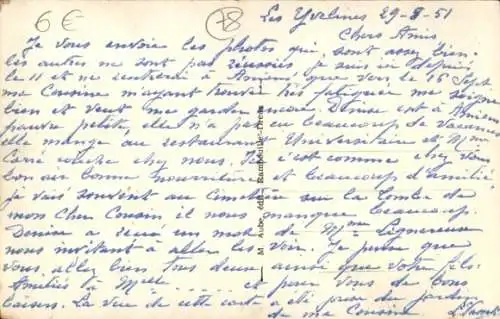 6 €
78
Les Yvelines 29-8-51
Chers Amis
Je vous envoie les photos qui sont assez bien
les autres ne sont pas réussies je suis ici depuis
le 11 et ne rentrerai à Amiens que vers le 16 Sept
ma Cousine m'ayant trouvé très fatiguée me soigne
bien et veut me garder encore. Denise est à Amiens
pauvre petite elle n'a pas eu beaucoup de vacances
elle mange au restaurant Universitaire et Mme
Carré couche chez nous. Ici c'est comme chez vous
bon air bonne nourriture et beaucoup d'amitié
je vais souvent au cimetière sur la tombe de
mon cher Cousin il nous manque beaucoup.
Denise a reçu un mot de Mme
nous invitant à aller les voir. Je pense que
vous allez bien tous deux ainsi que votre fils.
Amitiés à Melle ........ et pour vous de bons
baisers. La vue de cette carte a été prise du jardin
de ma Cousine
M. Aubé, édit. Rambouillet